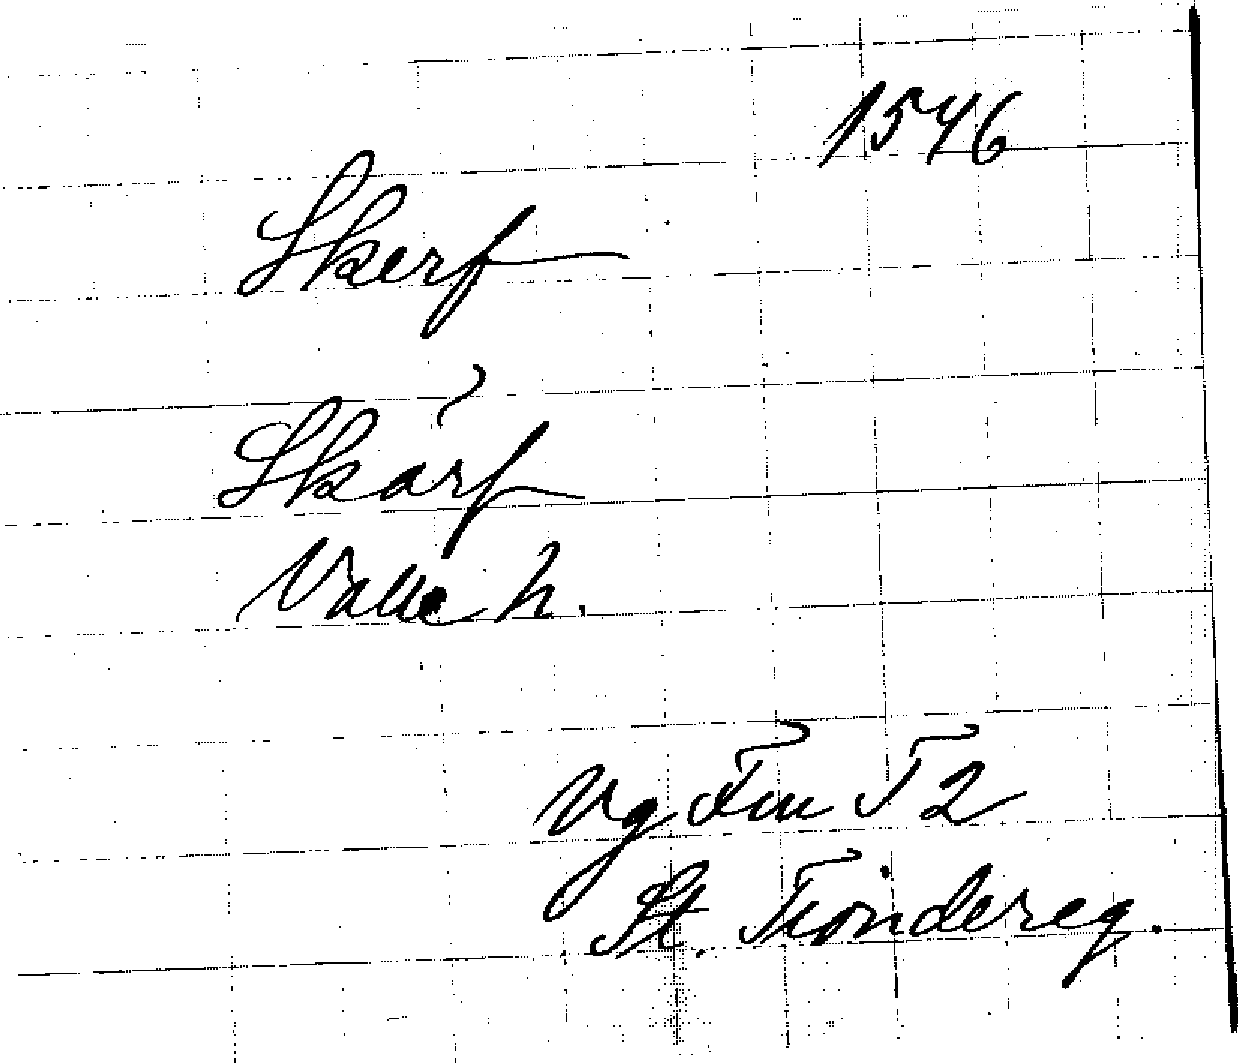 1546
Skerf
Skärf
Valle h.
Vg T 2
St. Tiondereg.